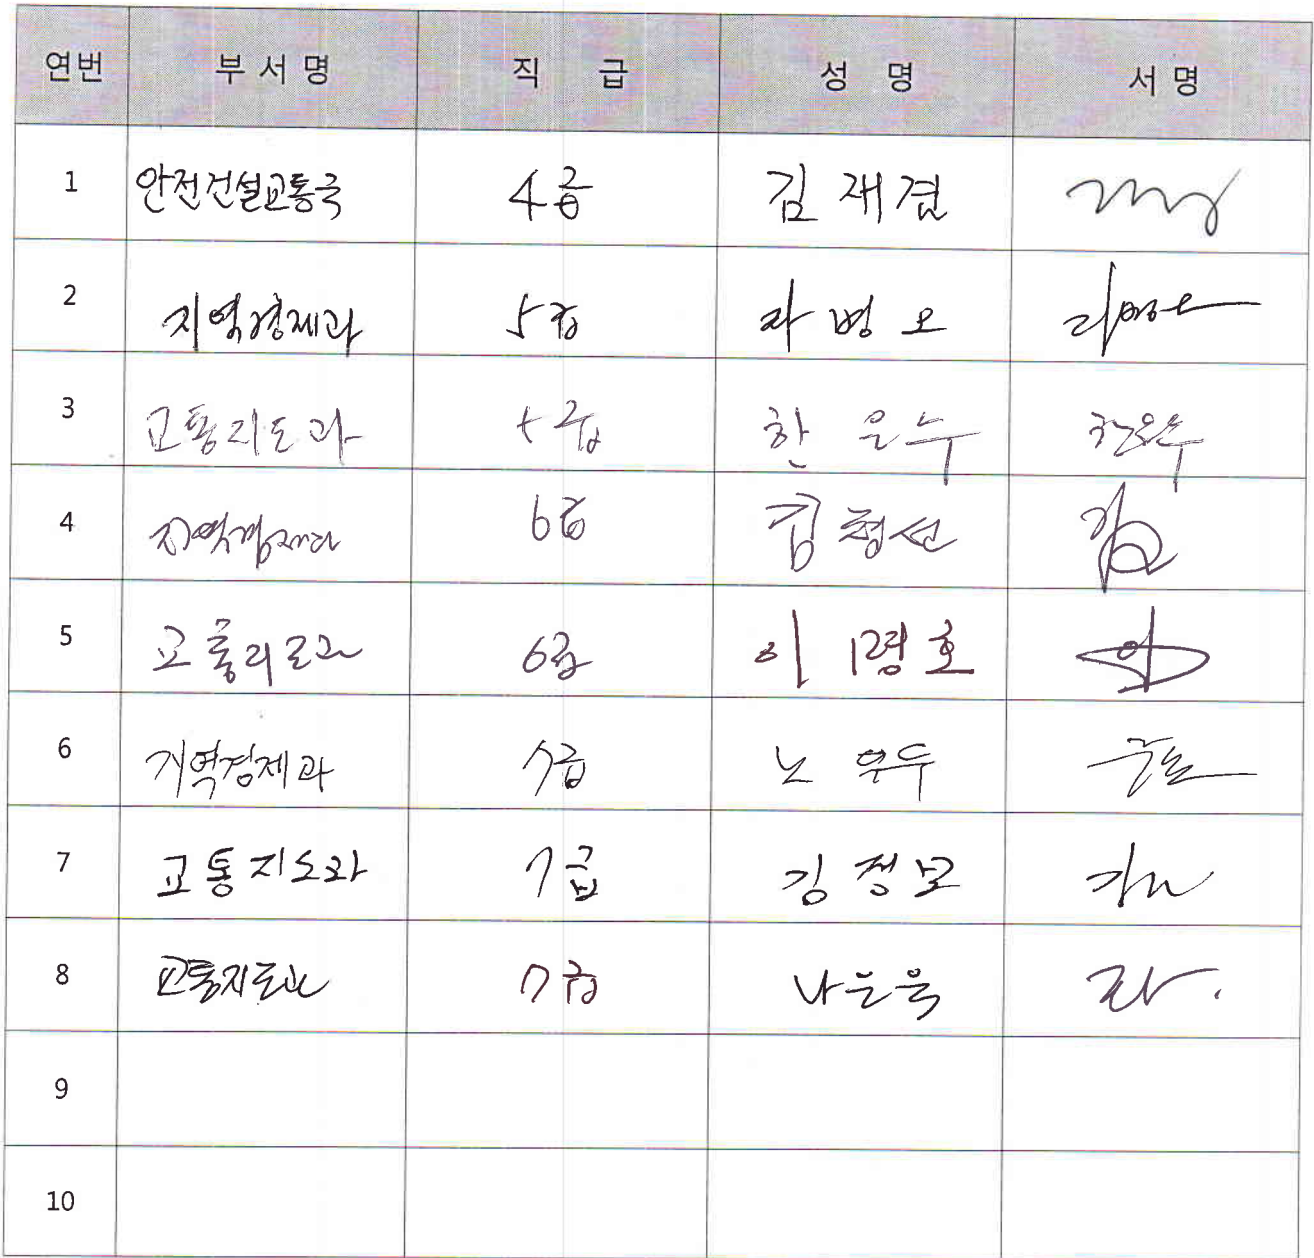 연번 부서명 직 급 성 명 서명
1 안전건설교통국 4급 김재겸
2 지역경제과 5급
3 교통지도과 5급 한은수
4 지역경제과 6급 김형선
5 교통지도과 6급 이 호
6 지역경제과 7급 노
7 교통지도과 7급 김정모
8 교통지도과 7급 나은욱
9
10